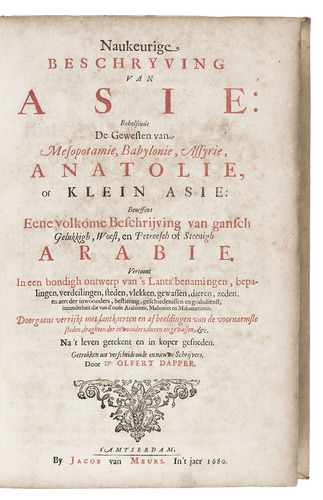 Naukeurige
BESCHRYVING
VAN
ASIE:
Behelsende
De Gewesten van
Mesopotamie, Babylonie, Assyrie,
ANATOLIE,
OF KLEIN ASIE:
Beneffens
Eene volkome Beschrijving van gansch
Gelukkigh, Woest, en Petreesch of Steenigh
ARABIE.
Vertoont
In een bondigh ontwerp van 's Lants benamingen, bepa-
lingen, verdeilingen, steden, vlekken, gewassen, dieren, zeden,
en aert der inwoonders, bestiering, geschiedenissen en godtsdienst,
inzonderheit die van d'oude Arabieren, Mahomet en Mahometanen.
Doorgaens verrijkt met lantkaerten en afbeeldingen van de voornaemste
steden, draghten der inwoonders, dieren en gewassen, &c.
Na 't leven getekent en in koper gesneden.
Getrokken uit verscheide oude en nieuwe Schrijvers,
Door Dr. OLFERT DAPPER.
t'AMSTERDAM,
By JACOB van MEURS. In 't jaer 1680.